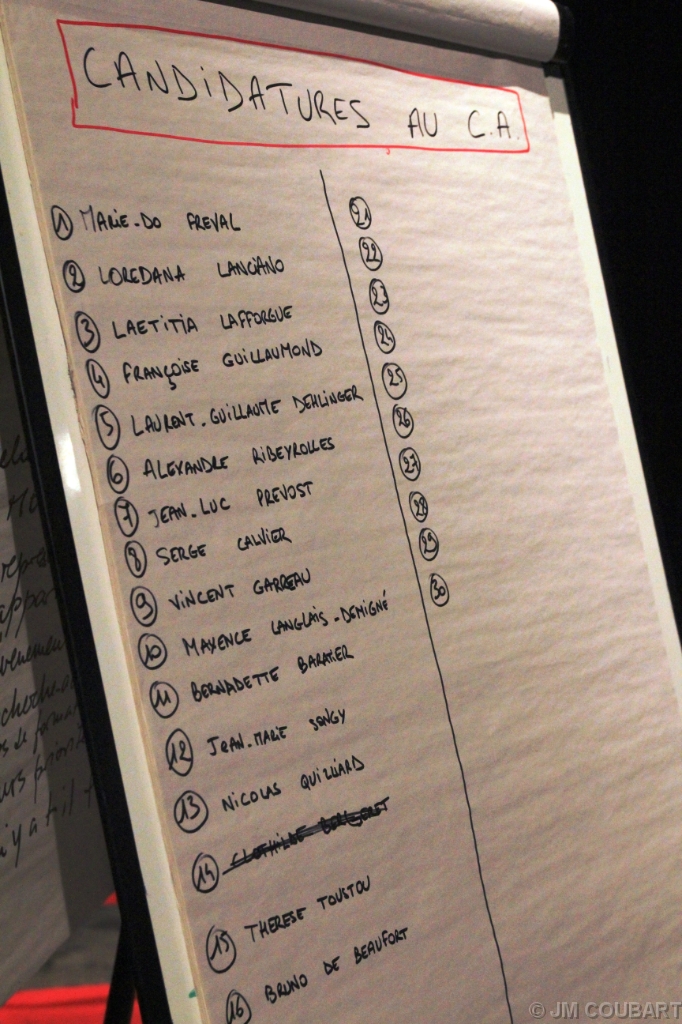 CANDIDATURES AU C.A.
1 MARIE-DO FREVAL
2 LOREDANA LANCIANO
3 LAETITIA LAFFORGUE
4 FRANÇOISE GUILLAUMOND
5 LAURENT-GUILLAUME DEHLINGER
6 ALEXANDRE RIBEYROLLES
7 JEAN-LUC PREVOST
8 SERGE CALVIER
9 VINCENT GARREAU
10 MAXENCE LANGLAIS-DEMIGNÉ
11 BERNADETTE BARATIER
12 JEAN-MARIE SONGY
13 NICOLAS QUILLIARD
14 CLOTHILDE
15 THERESE TOUSTOU
16 BRUNO DE BEAUFORT
21
22
23
24
25
26
27
28
29
30
il y a t il
© JM COUBART